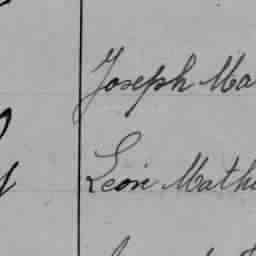 Joseph Ma
Leon Mathi